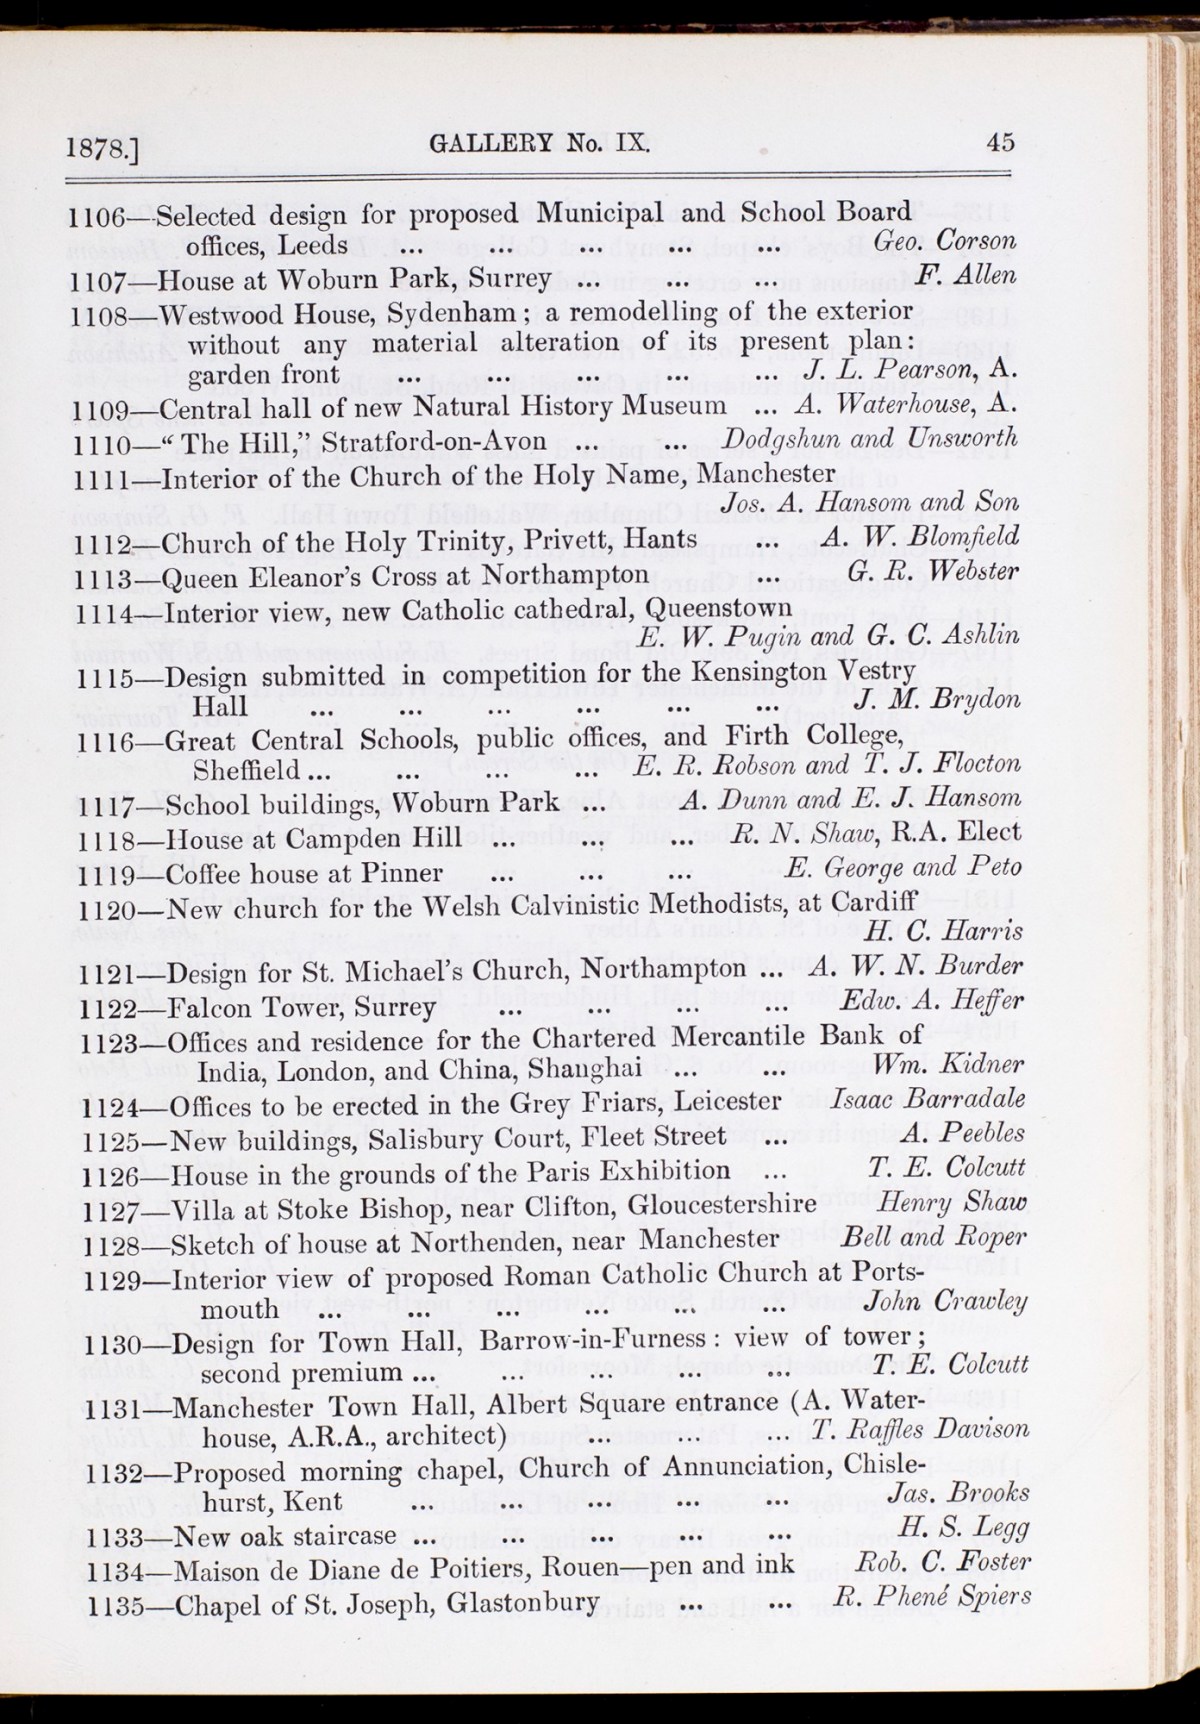 1878.] GALLERY No. IX. 45
1106—Selected design for proposed Municipal and School Board
offices, Leeds ... ... ... ... ... Geo. Corson
1107—House at Woburn Park, Surrey ... ... ... F. Allen
1108—Westwood House, Sydenham ; a remodelling of the exterior
without any material alteration of its present plan :
garden front ... ... ... ... ... J. L. Pearson, A.
1109—Central hall of new Natural History Museum ... A. Waterhouse, A.
1110—“ The Hill,” Stratford-on-Avon ... ... Dodgshun and Unsworth
1111—Interior of the Church of the Holy Name, Manchester
Jos. A. Hansom and Son
1112—Church of the Holy Trinity, Privett, Hants ... A. W. Blomfield
1113—Queen Eleanor's Cross at Northampton ... G. R. Webster
1114—Interior view, new Catholic cathedral, Queenstown
E. W. Pugin and G. C. Ashlin
1115—Design submitted in competition for the Kensington Vestry
Hall ... ... ... ... ... ... J. M. Brydon
1116—Great Central Schools, public offices, and Firth College,
Sheffield ... ... ... ... E. R. Robson and T. J. Flocton
1117—School buildings, Woburn Park ... A. Dunn and E. J. Hansom
1118—House at Campden Hill ... ... ... R. N. Shaw, R.A. Elect
1119—Coffee house at Pinner ... ... ... E. George and Peto
1120—New church for the Welsh Calvinistic Methodists, at Cardiff
H. C. Harris
1121—Design for St. Michael's Church, Northampton ... A. W. N. Burder
1122—Falcon Tower, Surrey ... ... ... ... Edw. A. Heffer
1123—Offices and residence for the Chartered Mercantile Bank of
India, London, and China, Shanghai ... ... Wm. Kidner
1124—Offices to be erected in the Grey Friars, Leicester Isaac Barradale
1125—New buildings, Salisbury Court, Fleet Street ... A. Peebles
1126—House in the grounds of the Paris Exhibition ... T. E. Colcutt
1127—Villa at Stoke Bishop, near Clifton, Gloucestershire Henry Shaw
1128—Sketch of house at Northenden, near Manchester Bell and Roper
1129—Interior view of proposed Roman Catholic Church at Ports-
mouth ... ... ... ... ... ... John Crawley
1130—Design for Town Hall, Barrow-in-Furness : view of tower ;
second premium ... ... ... ... ... T. E. Colcutt
1131—Manchester Town Hall, Albert Square entrance (A. Water-
house, A.R.A., architect) ... ... ... T. Raffles Davison
1132—Proposed morning chapel, Church of Annunciation, Chisle-
hurst, Kent ... ... ... ... ... Jas. Brooks
1133—New oak staircase ... ... ... ... ... H. S. Legg
1134—Maison de Diane de Poitiers, Rouen—pen and ink Rob. C. Foster
1135—Chapel of St. Joseph, Glastonbury ... ... R. Phené Spiers